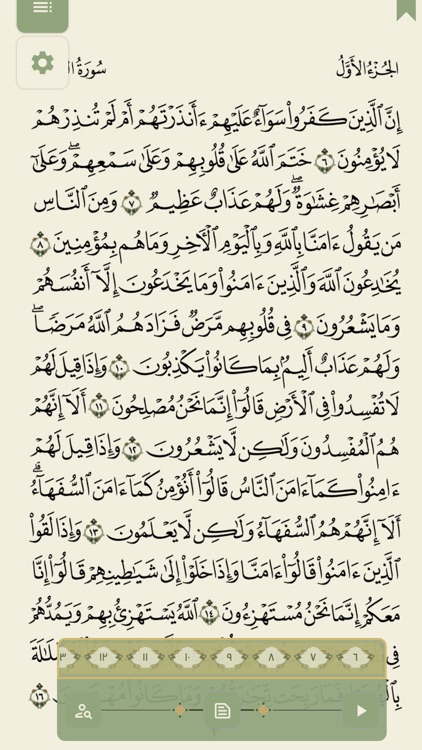 الجزء الأول
سورة ال
إِنَّ ٱلَّذِينَ كَفَرُوا۟ سَوَآءٌ عَلَيْهِمْ ءَأَنذَرْتَهُمْ أَمْ لَمْ تُنذِرْهُمْ
لَا يُؤْمِنُونَ ٦ خَتَمَ ٱللَّهُ عَلَىٰ قُلُوبِهِمْ وَعَلَىٰ سَمْعِهِمْ ۖ وَعَلَىٰٓ
أَبْصَـٰرِهِمْ غِشَـٰوَةٌ ۖ وَلَهُمْ عَذَابٌ عَظِيمٌ ٧ وَمِنَ ٱلنَّاسِ
مَن يَقُولُ ءَامَنَّا بِٱللَّهِ وَبِٱلْيَوْمِ ٱلْـَٔاخِرِ وَمَا هُم بِمُؤْمِنِينَ ٨
يُخَـٰدِعُونَ ٱللَّهَ وَٱلَّذِينَ ءَامَنُوا۟ وَمَا يَخْدَعُونَ إِلَّآ أَنفُسَهُمْ
وَمَا يَشْعُرُونَ ٩ فِى قُلُوبِهِم مَّرَضٌ فَزَادَهُمُ ٱللَّهُ مَرَضًا ۖ
وَلَهُمْ عَذَابٌ أَلِيمٌۢ بِمَا كَانُوا۟ يَكْذِبُونَ ١٠ وَإِذَا قِيلَ لَهُمْ
لَا تُفْسِدُوا۟ فِى ٱلْأَرْضِ قَالُوٓا۟ إِنَّمَا نَحْنُ مُصْلِحُونَ ١١ أَلَآ إِنَّهُمْ
هُمُ ٱلْمُفْسِدُونَ وَلَـٰكِن لَّا يَشْعُرُونَ ١٢ وَإِذَا قِيلَ لَهُمْ
ءَامِنُوا۟ كَمَآ ءَامَنَ ٱلنَّاسُ قَالُوٓا۟ أَنُؤْمِنُ كَمَآ ءَامَنَ ٱلسُّفَهَآءُ ۗ
أَلَآ إِنَّهُمْ هُمُ ٱلسُّفَهَآءُ وَلَـٰكِن لَّا يَعْلَمُونَ ١٣ وَإِذَا لَقُوا۟
ٱلَّذِينَ ءَامَنُوا۟ قَالُوٓا۟ ءَامَنَّا وَإِذَا خَلَوْا۟ إِلَىٰ شَيَـٰطِينِهِمْ قَالُوٓا۟ إِنَّا
مَعَكُمْ إِنَّمَا نَحْنُ مُسْتَهْزِءُونَ ١٤ ٱللَّهُ يَسْتَهْزِئُ بِهِمْ وَيَمُدُّهُمْ
فِى
٦ ٧ ٨ ٩ ١٠ ١١ ١٢ ٣
فَمَا رَبِحَت تِّجَـٰرَتُهُمْ وَمَا كَانُوا۟ ١٦